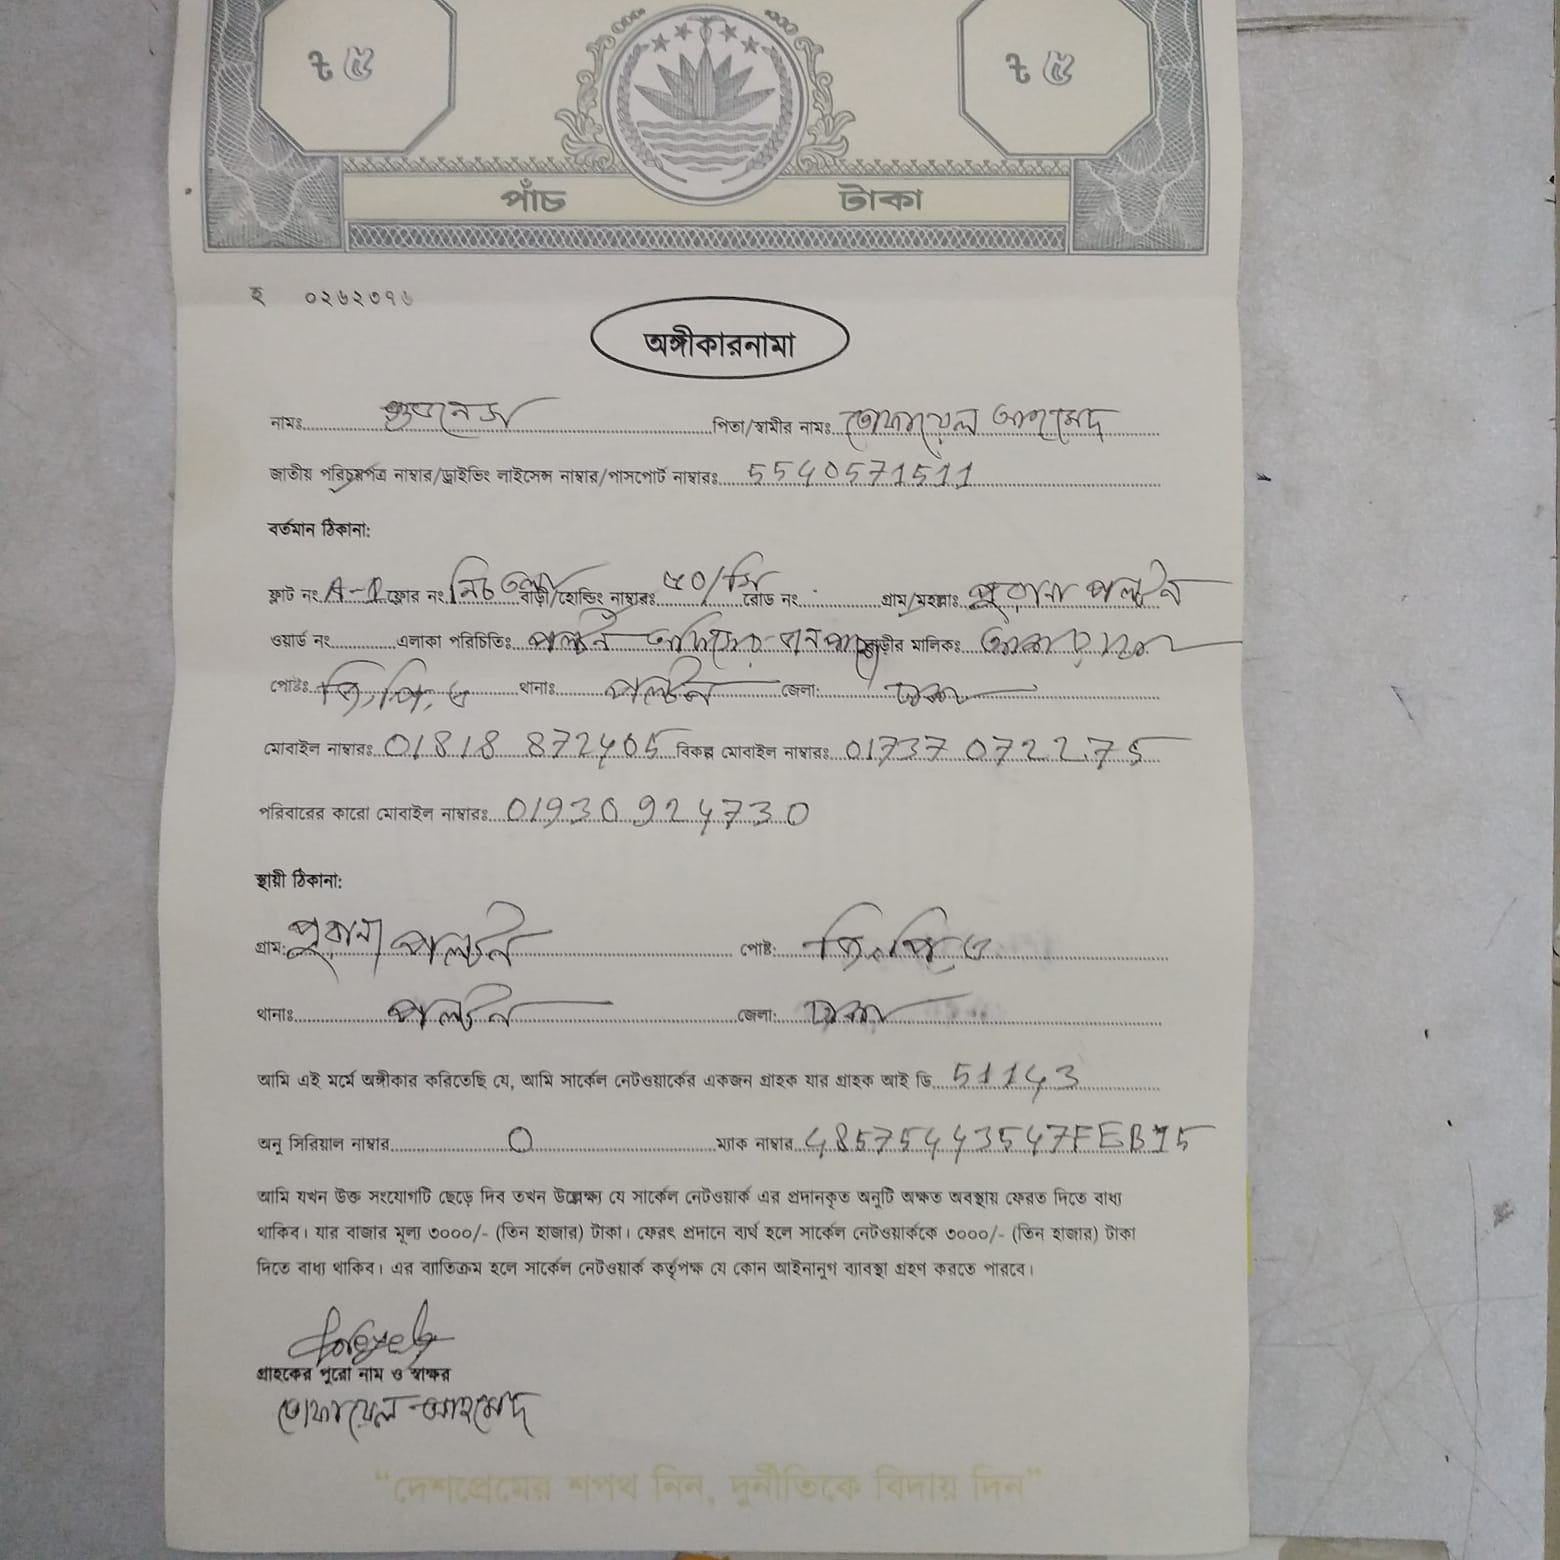 ৳ ৫ ৳ ৫
পাঁচ টাকা
হ ০২৬২৩৭৬
অঙ্গীকারনামা
নামঃ পিতা/স্বামীর নামঃ তোফায়েল আহমেদ
জাতীয় পরিচয়পত্র নাম্বার/ড্রাইভিং লাইসেন্স নাম্বার/পাসপোর্ট নাম্বারঃ 5540571511
বর্তমান ঠিকানা:
ফ্লাট নং ফ্লোর নং নিচ তলা বাড়ী/হোল্ডিং নাম্বারঃ ৫০/সি রোড নং গ্রাম/মহল্লাঃ পুরানা পল্টন
ওয়ার্ড নং এলাকা পরিচিতিঃ পল্টন বাড়ীর মালিকঃ
পোষ্টঃ জি.পি.ও থানাঃ পল্টন জেলা: ঢাকা
মোবাইল নাম্বারঃ 01818 872405 বিকল্প মোবাইল নাম্বারঃ 01737 072275
পরিবারের কারো মোবাইল নাম্বারঃ 01930924730
স্থায়ী ঠিকানা:
গ্রাম: পুরানা পল্টন পোষ্ট: জি.পি.ও
থানাঃ পল্টন জেলা: ঢাকা
আমি এই মর্মে অঙ্গীকার করিতেছি যে, আমি সার্কেল নেটওয়ার্কের একজন গ্রাহক যার গ্রাহক আই ডি 51143
অনু সিরিয়াল নাম্বার 0 ম্যাক নাম্বার 48575443547FEB15
আমি যখন উক্ত সংযোগটি ছেড়ে দিব তখন উল্লেক্ষ্য যে সার্কেল নেটওয়ার্ক এর প্রদানকৃত অনুটি অক্ষত অবস্থায় ফেরত দিতে বাধ্য
থাকিব। যার বাজার মূল্য ৩০০০/- (তিন হাজার) টাকা। ফেরৎ প্রদানে ব্যর্থ হলে সার্কেল নেটওয়ার্ককে ৩০০০/- (তিন হাজার) টাকা
দিতে বাধ্য থাকিব। এর ব্যাতিক্রম হলে সার্কেল নেটওয়ার্ক কর্তৃপক্ষ যে কোন আইনানুগ ব্যাবস্থা গ্রহণ করতে পারবে।
গ্রাহকের পুরো নাম ও স্বাক্ষর
তোফায়েল আহমেদ
“দেশপ্রেমের শপথ নিন, দুর্নীতিকে বিদায় দিন”